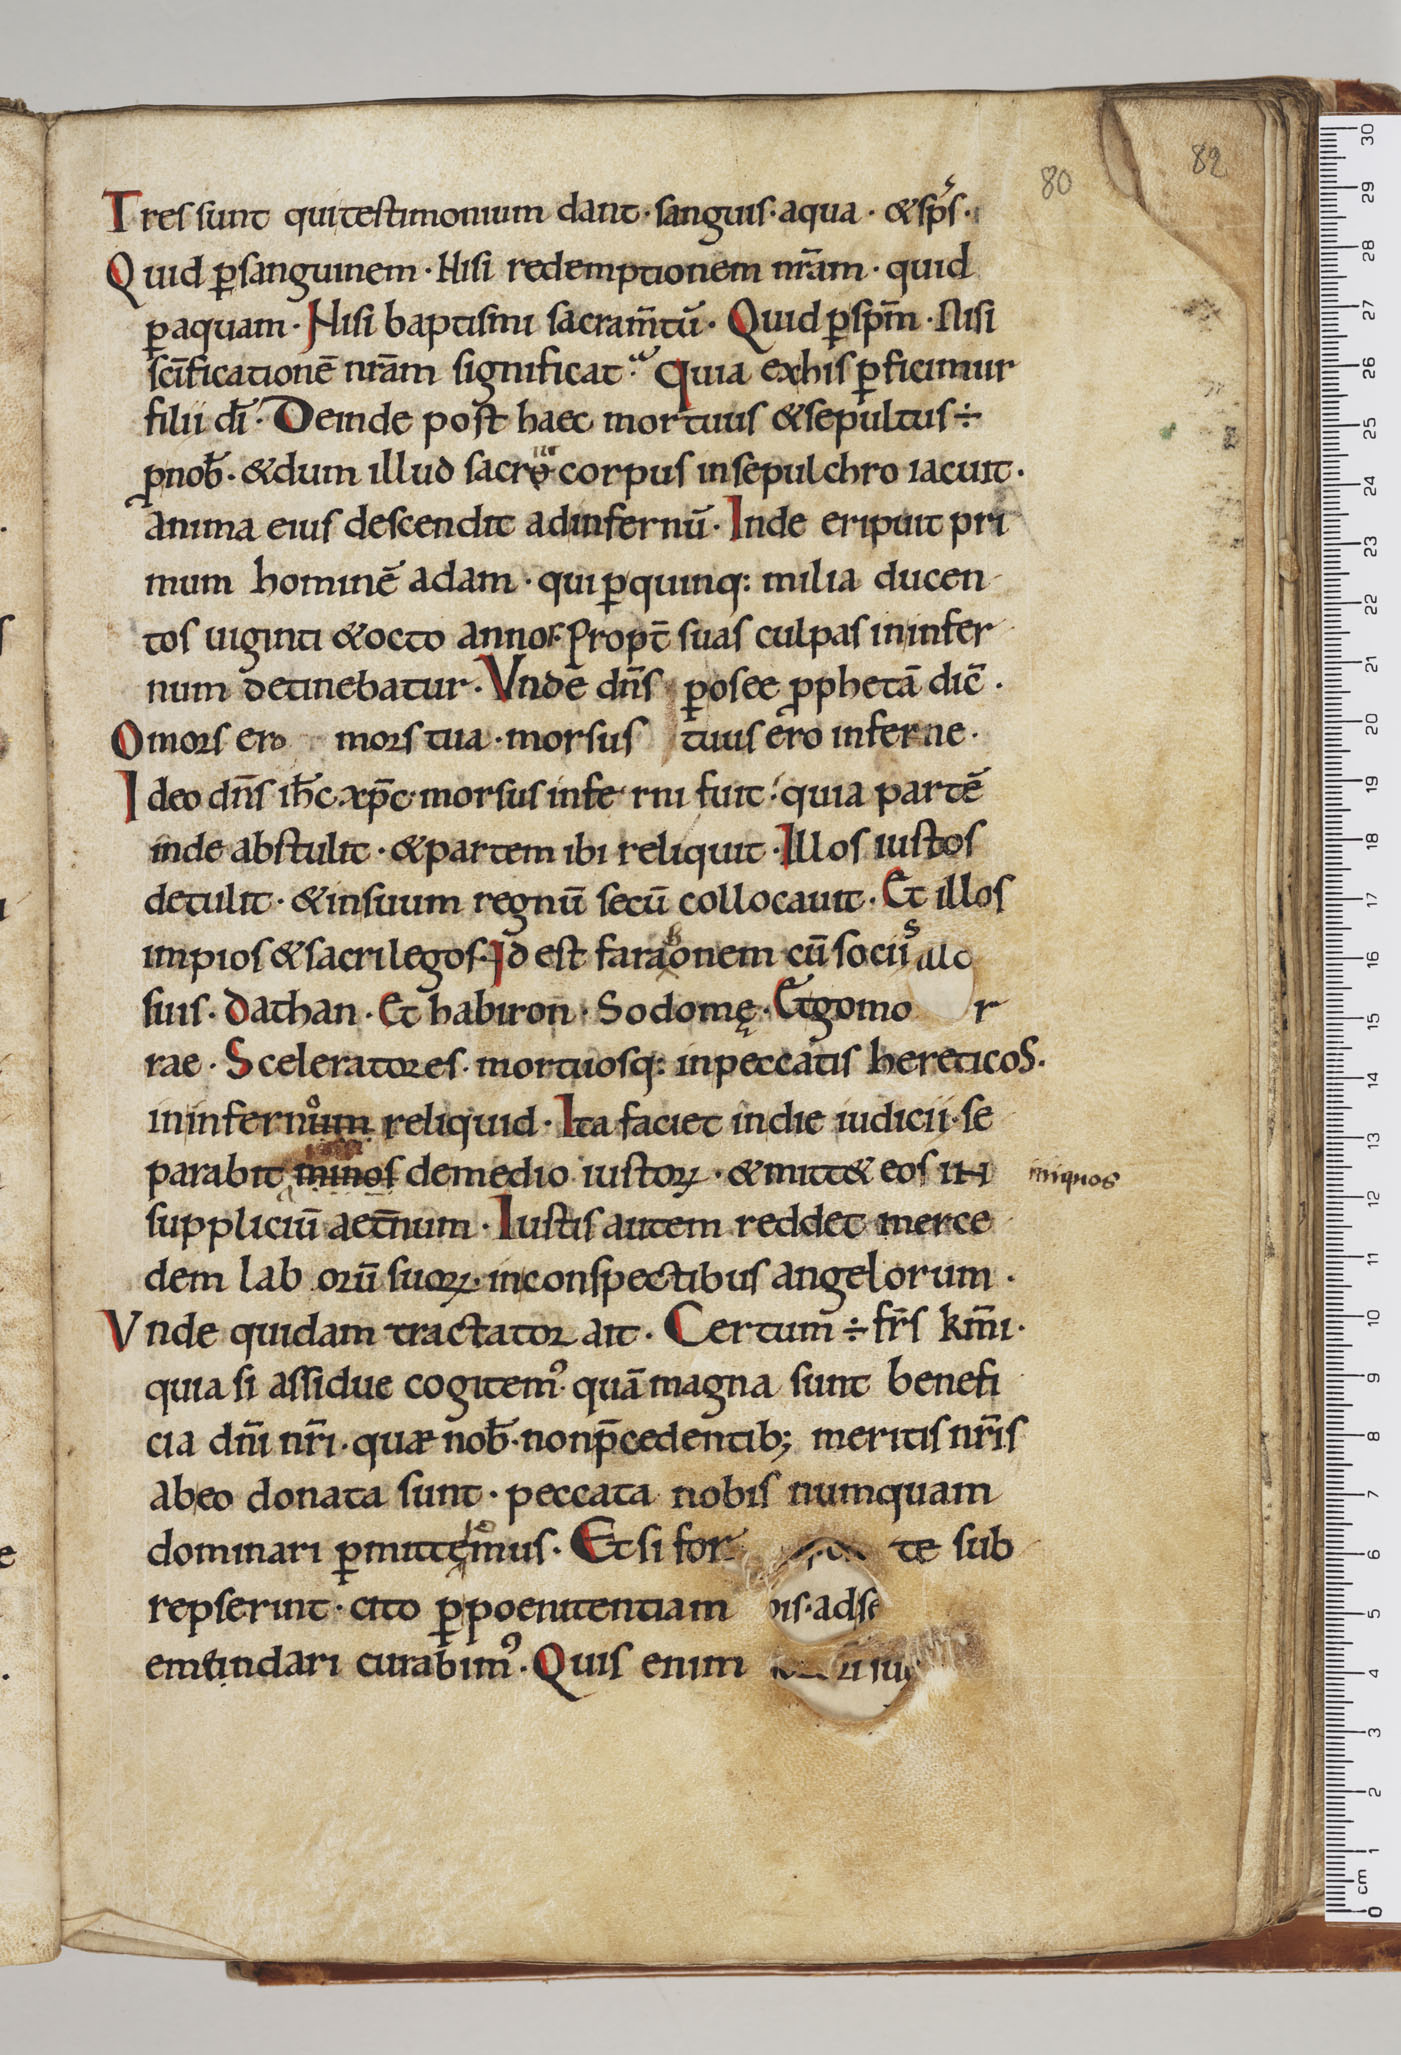 80
82
Tres sunt qui testimonium dant · sanguis · aqua · & sp̄s ·
Quid p̱ sanguinem · Nisi redemptionem nr̄am · quid
p̱ aquam · Nisi baptismi sacram̄tū · Quid p̱ sp̄m · Nisi
sc̄ificationē nr̄am significat · Quia ex his p̱ficimur
filii dī · Deinde post haec mortuus & sepultus ÷
p̱ nob̄ · & dum illud sacrū corpus in sepulchro iacuit ·
anima eius descendit ad infernū · Inde eripuit pri
mum hominē adam · qui p̱ quinq: milia ducen
tos uiginti & octo annos · Propt̄ suas culpas in infer
num detinebatur · Vnde dn̄s p̱ osee p̱phetā dic̄ ·
O mors ero mors tua · morsus tuus ero inferne ·
Ideo dn̄s ih̄c xp̄c · morsus inferni fuit · quia partē
inde abstulit · & partem ibi reliquit · Illos iustos
detulit · & in suum regnū secū collocauit · Et illos
impios & sacrilegos · Id est farahonem cū sociis
suis · Dathan · Et habiron · Sodomę · Et gomo r
rae · Sceleratores · mortuosq: in peccatis hereticos ·
in infernum reliquid · Ita faciet in die iudicii · se
parabit minos de medio iustoꝝ · & mitt& eos in
iniquos
suppliciū aet̄num · Iustis autem reddet merce
dem lab orū suoꝝ · in conspectibus angelorum ·
Vnde quidam tractator ait · Certum ÷ fr̄s km̄i ·
quia si assidue cogitemꝰ · quā magna sunt benefi
cia dn̄i nr̄i · quæ nob̄ · non p̄cedentib; meritis nr̄is
ab eo donata sunt · peccata nobis numquam
dominari p̱mittemus · Et si for te sub
repserint · cito p̱ poenitentiam
emendari curabimꝰ · Quis enim
0 cm 1 2 3 4 5 6 7 8 9 10 11 12 13 14 15 16 17 18 19 20 21 22 23 24 25 26 27 28 29 30